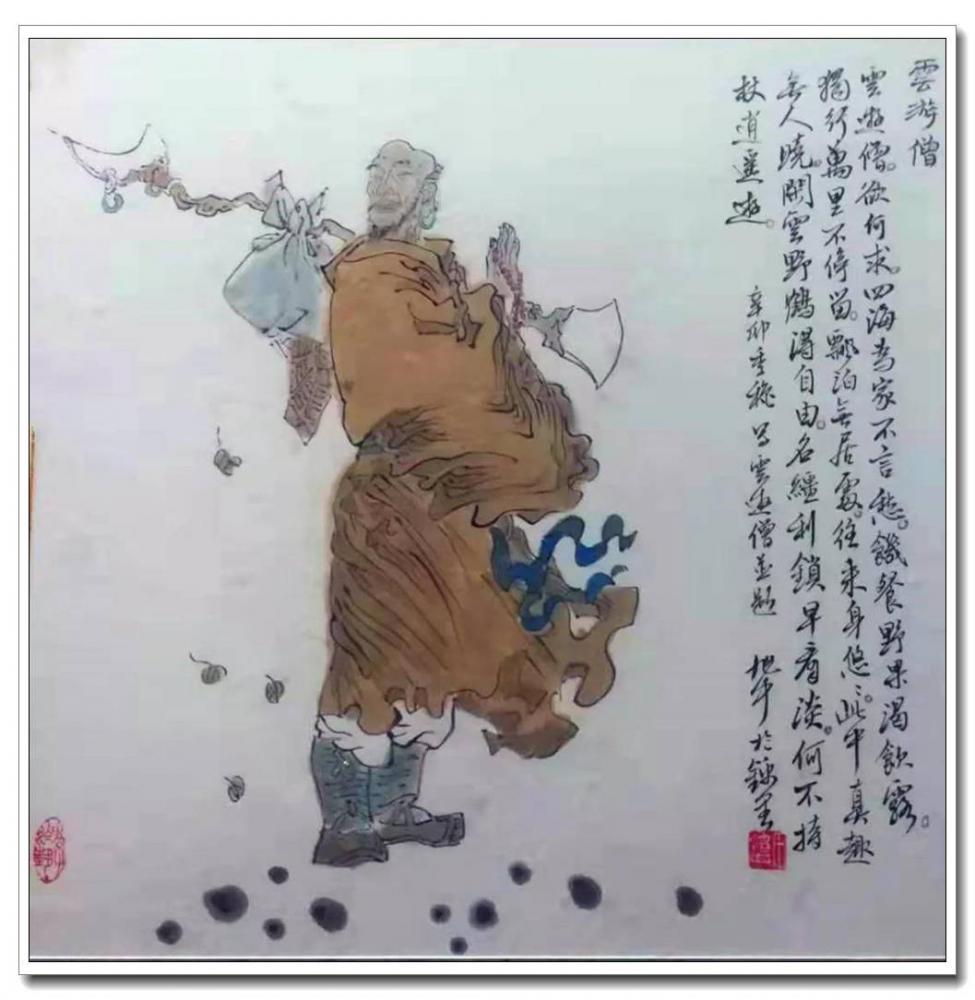 雲游僧
雲遊僧。欲何求。四海為家不言愁。饑餐野果渴飲露。
獨行萬里不停留。飄泊無居處。往來身悠悠。此中真趣
無人曉。閑雲野鶴得自由。名繮利鎖早看淡。何不持
杖逍遥遊。
辛卯季秋写雲遊僧並題 地平於